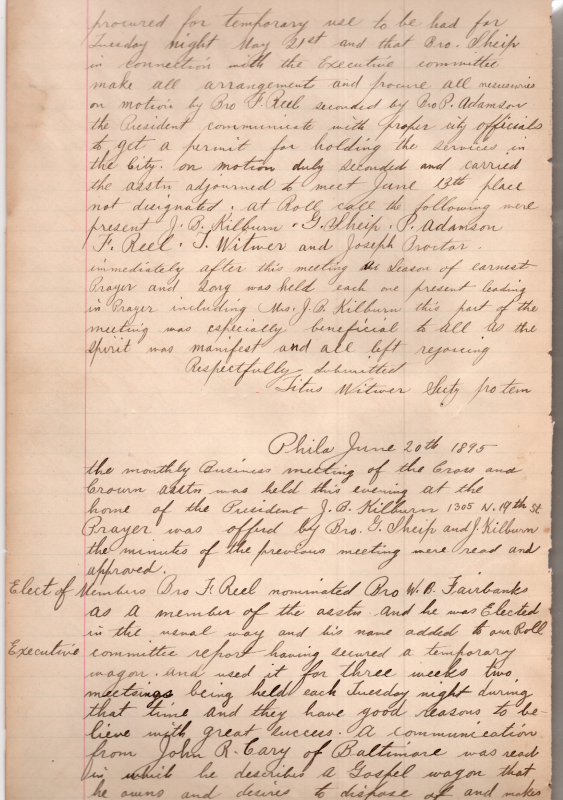 procured for temporary use to be had for
Tuesday night May 21st and that Bro. Sheip
in connection with the Executive committee
make all arrangement and procure all necessaries
on motion by Bro F. Reel seconded by Bro P. Adamson
the President communicate with proper city officials
to get a permit for holding the services in
the City. on motion duly seconded and carried
the asstn adjourned to meet June 13th place
not designated. at Roll call the following were
present J. B. Kilburn. G. Sheip. P. Adamson
F. Reel. T. Witwer and Joseph Proctor.
immediately after this meeting a Season of earnest
Prayer and Song was held each one present leading
in Prayer including Mrs. J. B. Kilburn this part of the
meeting was especially beneficial to all as the
Spirit was manifest and all left rejoicing
Respectfully Submitted
Titus Witwer Secty pro tem
Phila June 20th 1895
the monthly Business meeting of the Cross and
Crown asstn was held this evening at the
home of the President J. B. Kilburn 1305 N. 19th St
Prayer was offerd by Bro. G. Sheip and J. Kilburn
the minutes of the previous meeting were read and
approved.
Elect of Members Bro F. Reel nominated Bro W. B. Fairbanks
as a member of the asstn and he was Elected
in the usual way and his name added to our Roll
Executive committee report having secured a temporary
wagon. and used it for three weeks two
meetings being held each Tuesday night during
that time and they have good reasons to be-
lieve with great success. A communication
from John R. Cary of Baltimore was read
in which he describes a Gospel wagon that
he owns and desires to dispose of and makes